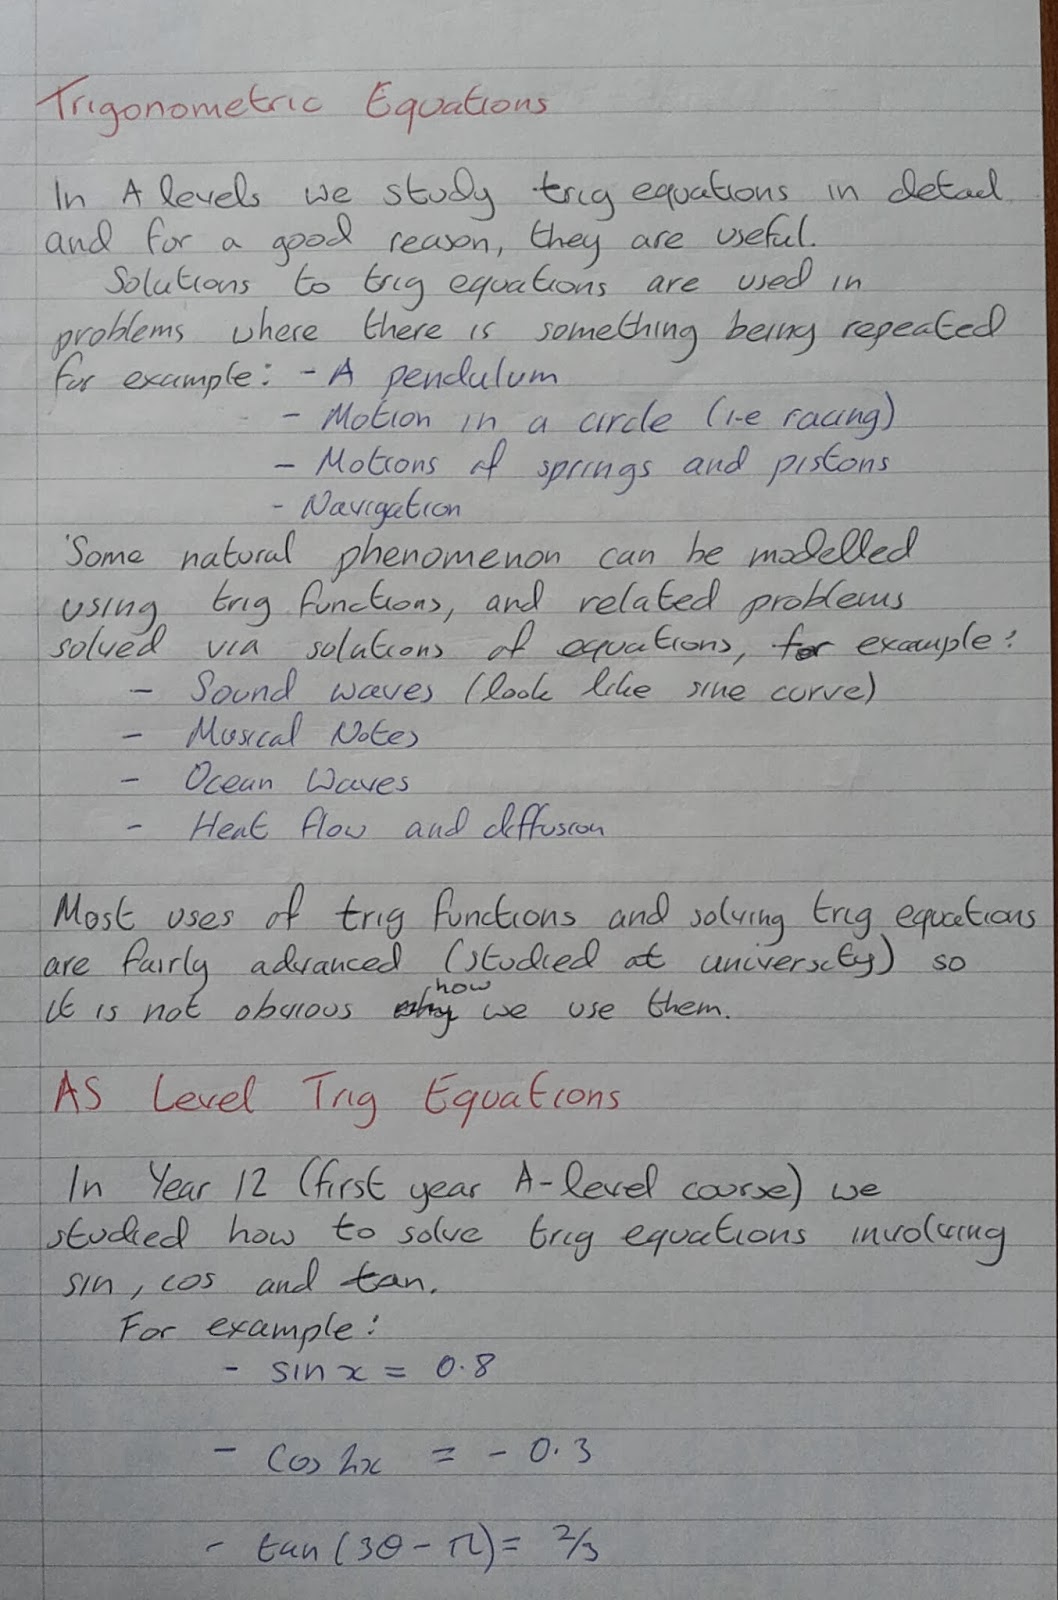 Trigonometric Equations
In A levels we study trig equations in detail
and for a good reason, they are useful.
Solutions to trig equations are used in
problems where there is something being repeated
for example: - A pendulum
- Motion in a circle (i-e racing)
- Motions of springs and pistons
- Navigation
Some natural phenomenon can be modelled
using trig functions, and related problems
solved via solutions of equations, for example:
- Sound waves (look like sine curve)
- Musical Notes
- Ocean Waves
- Heat flow and diffusion
Most uses of trig functions and solving trig equations
are fairly advanced (studied at university) so
it is not obvious how we use them.
AS Level Trig Equations
In Year 12 (first year A-level course) we
studied how to solve trig equations involving
sin, cos and tan.
For example:
- sin x = 0.8
- cos 2x = - 0.3
- tan (3θ - π) = 2/3